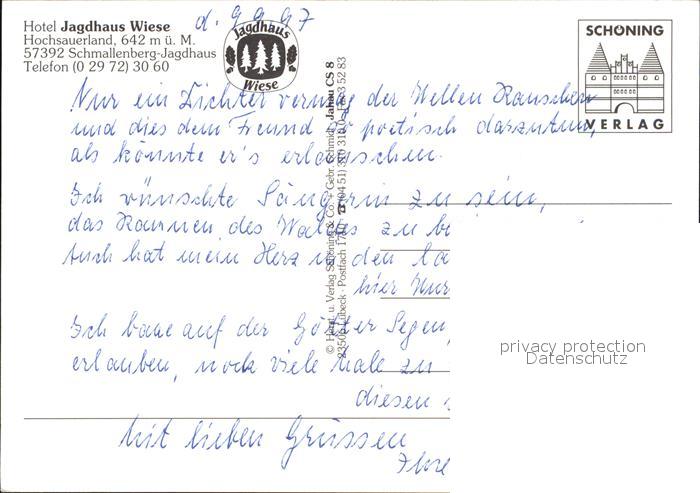 Hotel Jagdhaus Wiese
Hochsauerland, 642 m ü. M.
57392 Schmallenberg-Jagdhaus
Telefon (0 29 72) 30 60
d. 9.9.97
Jagdhaus
Wiese
SCHÖNING
VERLAG
Nur ein Dichter vermag der Wellen Rauschen
und dies dem Freund so poetisch darzutun,
als könnte er's erlauschen.
Ich wünschte Sängerin zu sein,
das Raunen des Waldes zu
Auch hat mein Herz in den
hier
Ich baue auf der Götter Segen,
erlauben, noch viele Male zu
diesen
Mit lieben Grüssen
Ihre
© Herst. u. Verlag Schöning & Co. + Gebr. Schmidt
Jahau CS 8
privacy protection
Datenschutz